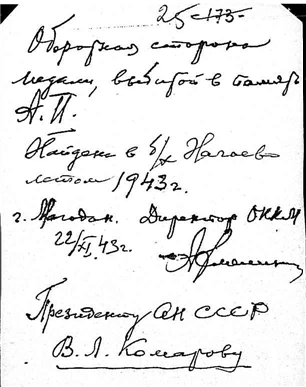 25 173
Оборотная сторона
медали, выбитой в память
А.П.
Найдена в б/х Нагаево
летом 1943г.
г. Магадан. Директор ОККМ
22/XI.43г.
Президенту АН СССР
В.Л. Комарову